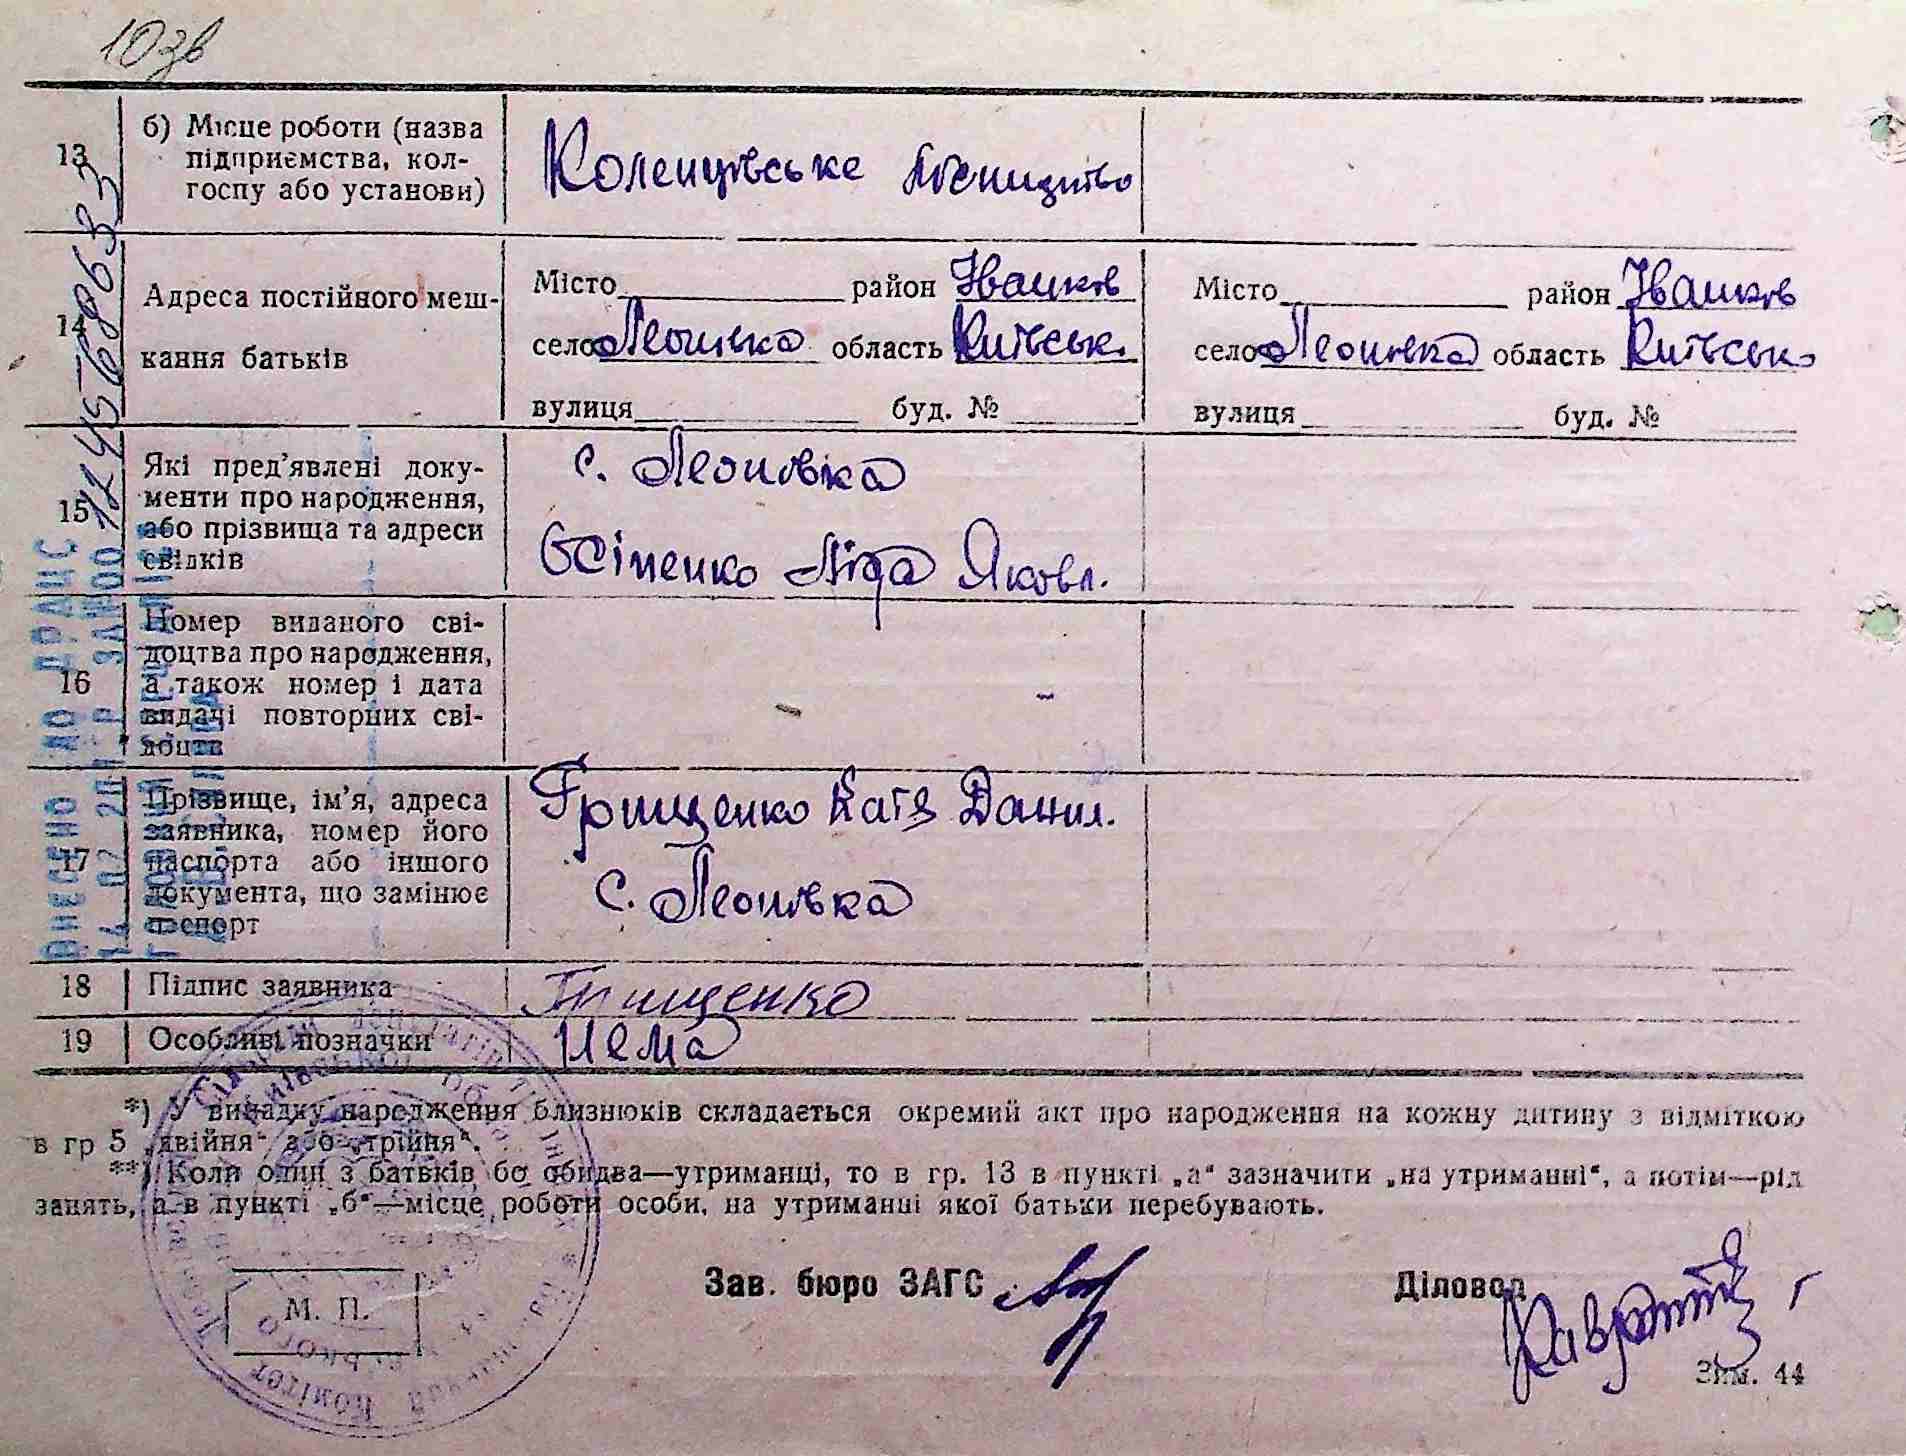 103в
13 б) Місце роботи (назва підприємства, колгоспу або установи)
Коленцівське лісництво
14 Адреса постійного мешкання батьків
Місто район Іванков
село Леонівка область Київськ.
вулиця буд. №
Місто район Іванков
село Леонівка область Київськ
вулиця буд. №
15 Які пред'явлені документи про народження, або прізвища та адреси свідків
с. Леонівка
Осіпенко Ліда Яковл.
16 Номер виданого свідоцтва про народження, а також номер і дата видачі повторних свідоцтв
17 Прізвище, ім'я, адреса заявника, номер його паспорта або іншого документа, що замінює паспорт
Грищенко Катя Данил.
с. Леонівка
18 Підпис заявника
Грищенко
19 Особливі позначки
Нема
*) У випадку народження близнюків складається окремий акт про народження на кожну дитину з відміткою
в гр 5 „двійня“ або „трійня“.
**) Коли один з батьків бо обидва—утриманці, то в гр. 13 в пункті „а“ зазначити „на утриманні“, а потім—рід
занять, а в пункті „б“—місце роботи особи, на утриманні якої батьки перебувають.
М. П.
Зав. бюро ЗАГС
Діловод
Зам. 44
ВНЕСЕНО ДО ДРАЦС